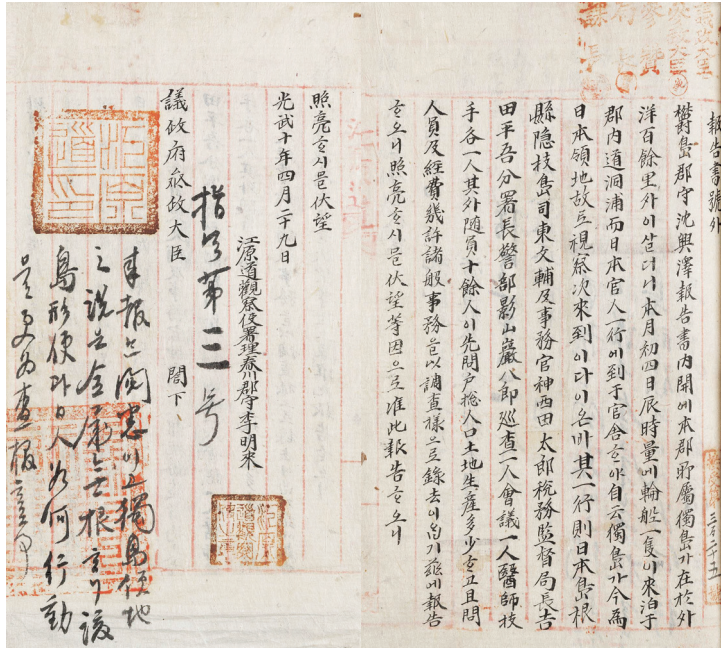 議政大臣
參政大臣
參贊
局長
課長
報告書號外
欝島郡守沈興澤報告書內開에本郡所屬獨島가在於外
洋百餘里外이살더니本月初四日辰時量에輪船一隻이來泊于
郡內道洞浦而日本官人一行에到于官舍ᄒᆞ야自云獨島가今爲
日本領地故로視察次來到이다이온바其一行則日本島根
縣隱技島司東文輔及事務官神西田太郎稅務監督局長吉
田平吾分署長警部影山巖八郎巡查一人會議一人醫師技
手各一人其外隨員十餘人이先問戶摠人口土地生産多少ᄒᆞ고且問
人員及經費幾許諸般事務을以調查樣으로錄去이압기玆에報告
ᄒᆞ오니照亮ᄒᆞ시믈伏望等因으로准此報告ᄒᆞ오니
照亮ᄒᆞ시믈伏望
光武十年四月二十九日
江原道觀察使署理春川郡守李明來
議政府參政大臣 閣下
指令第三号
來報은閱悉이고獨島領地
之說은全屬無根ᄒᆞ나該
島形便과日人如何行動
을更爲查報ᄒᆞᆯ事
江原道印